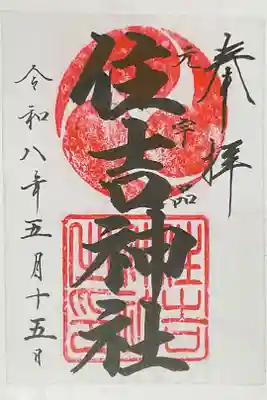 奉拝
元宇品
住吉神社
令和八年五月十五日